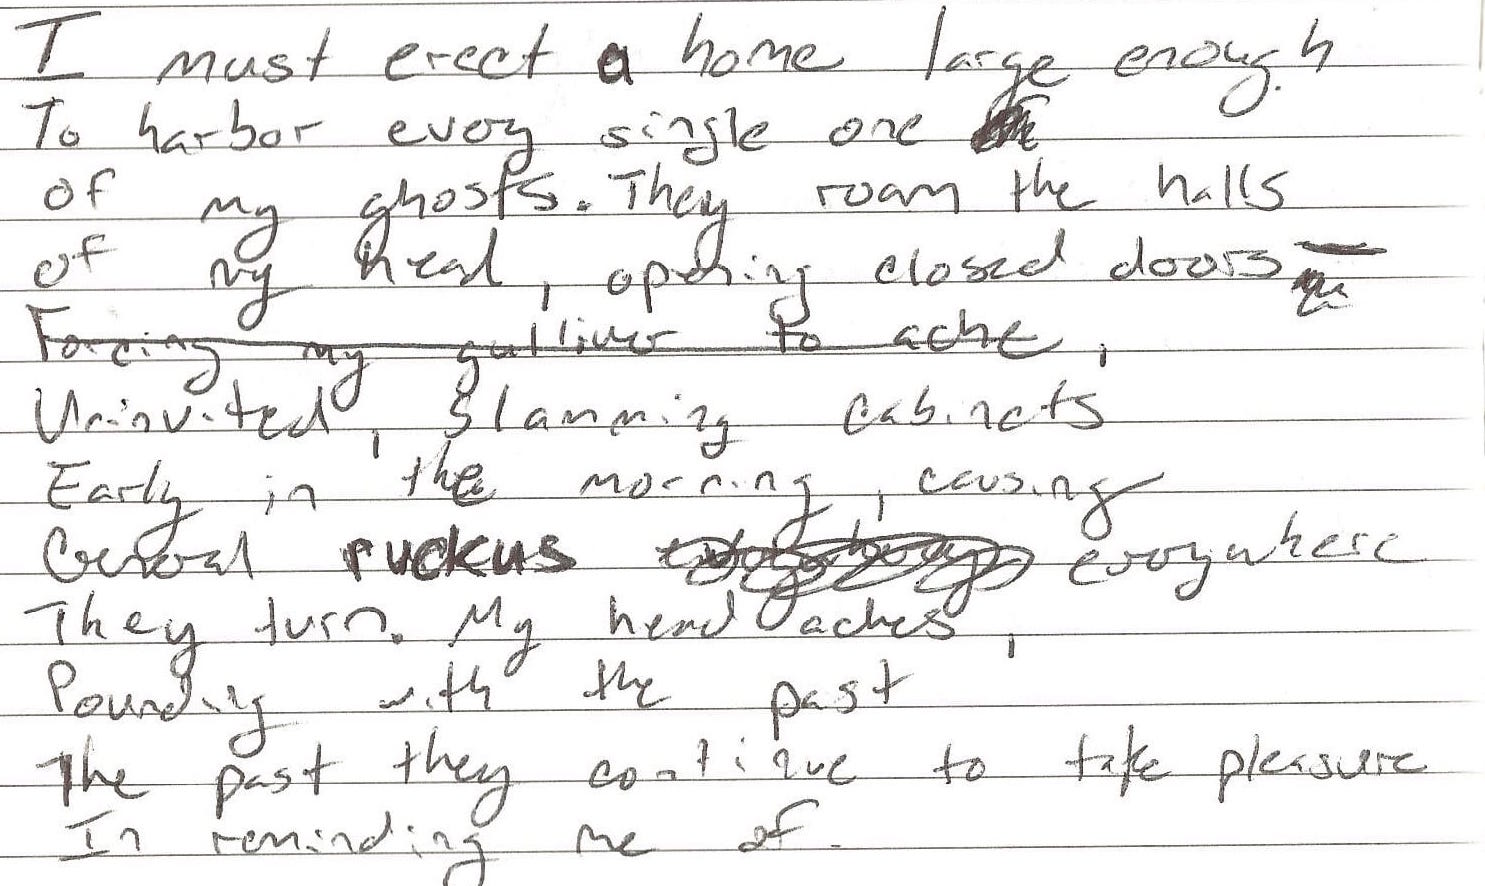 I must erect a home large enough
To harbor every single one
of my ghosts. They roam the halls
of my head, opening closed doors —
Forcing my gulliver to ache,
Uninvited, slamming cabinets
Early in the morning, causing
General ruckus everywhere
They turn. My head aches,
Pounding with the past
The past they continue to take pleasure
In reminding me of.